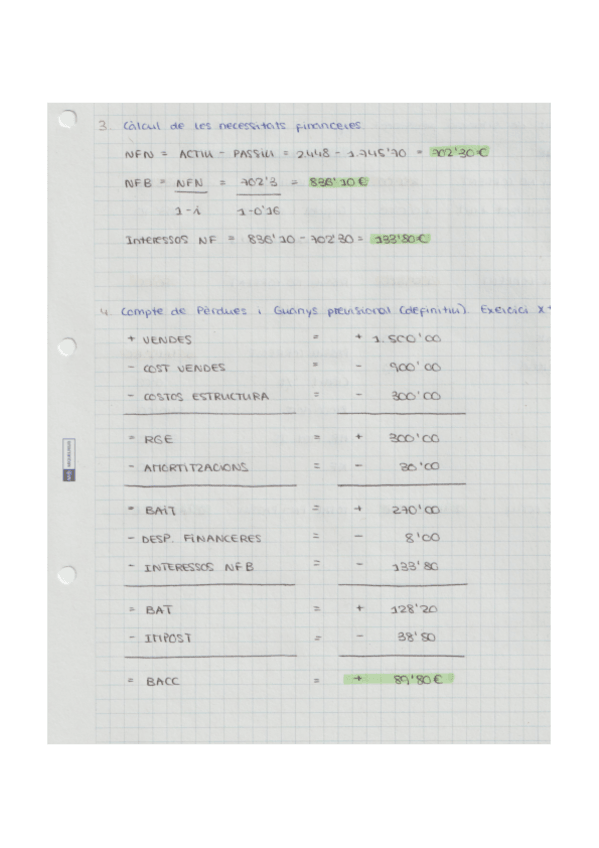 3. Càlcul de les necessitats financeres
NFN = ACTIU - PASSIU = 2448 - 1.745'70 = 702'30 €
NFB = NFN = 702'3 = 836'10 €
1-i 1-0'16
Interessos NF = 836'10 - 702'30 = 133'80 €
4. Compte de Pèrdues i Guanys previsional (definitiu). Exercici X+
+ VENDES = + 1.500'00
- COST VENDES = - 900'00
- COSTOS ESTRUCTURA = - 300'00
= RGE = + 300'00
- AMORTITZACIONS = - 30'00
= BAIT = + 270'00
- DESP. FINANCERES = - 8'00
- INTERESSOS NFB = - 133'80
= BAT = + 128'20
- IMPOST = - 38'50
= BACC = + 89'80 €